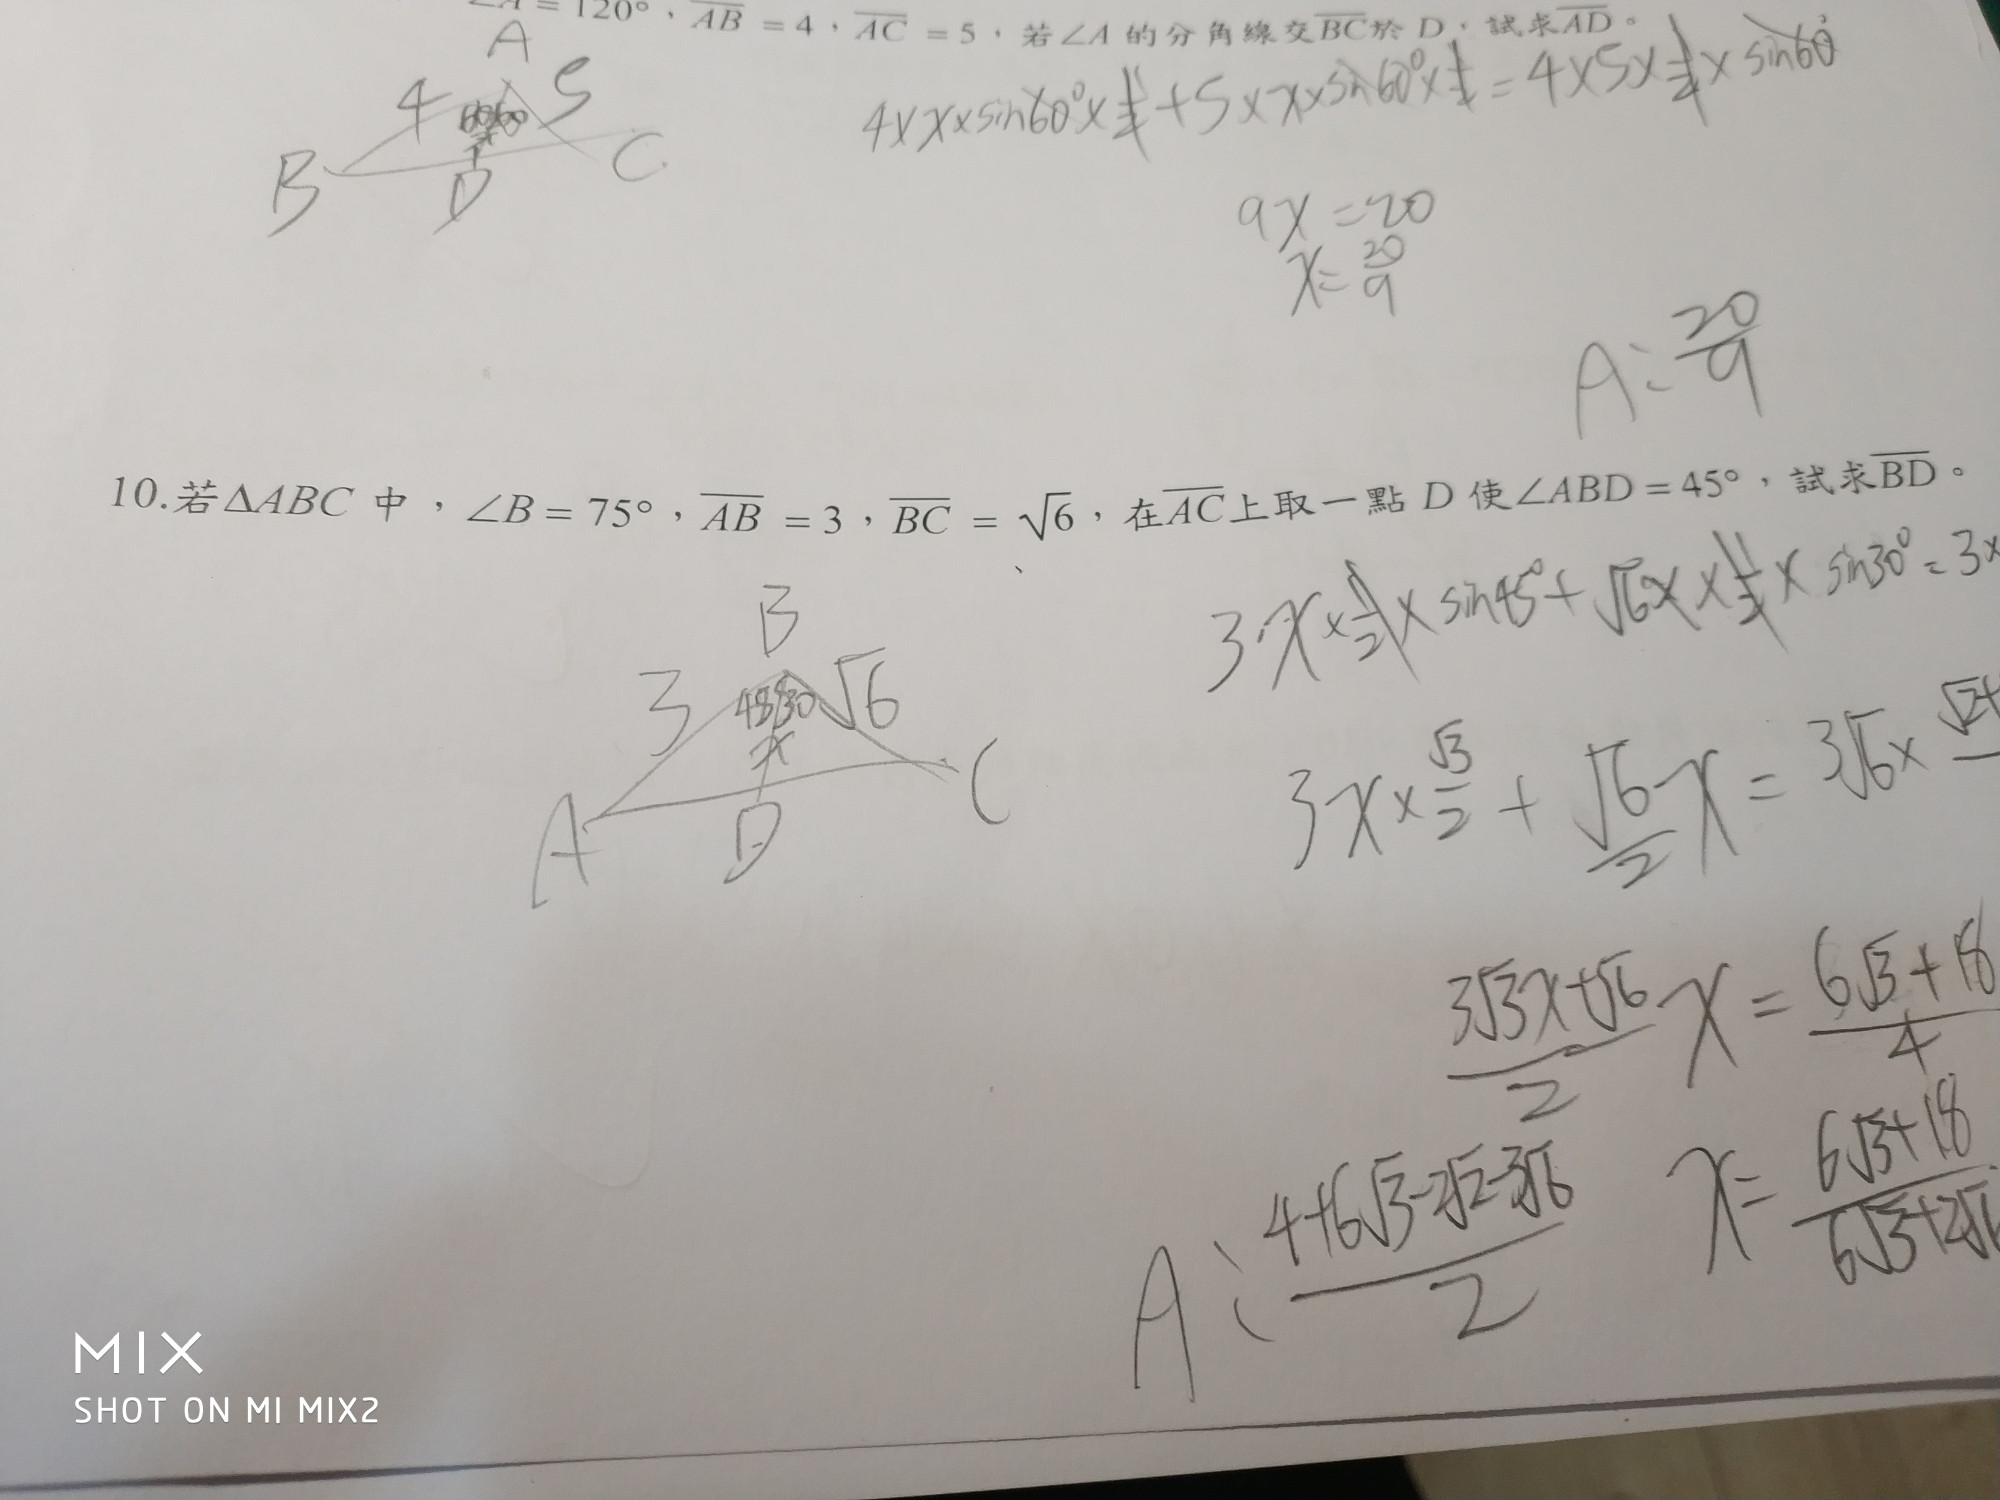 = 120°，AB = 4，AC = 5，若∠A 的分角線交BC於 D，試求AD。
A
4 5
60 60
x
B D C
4×x×sin60°×1/2+5×x×sin60°×1/2=4×5×1/2×sin60°
9x=20
x=20/9
A:20/9
10.若ΔABC 中，∠B = 75°，AB = 3，BC = √6，在AC上取一點 D 使∠ABD = 45°，試求BD。
B
3 √6
45 30
x
A D C
3·x×1/2×sin45°+√6x×1/2×sin30°=3×
3x×√3/2+√6/2x=3√6×√2+
3√3x+√6/2 x=6√3+18/4
x=6√3+18/6√3+2√6
A:4+6√3-2√2-3√6/2
MIX
SHOT ON MI MIX2